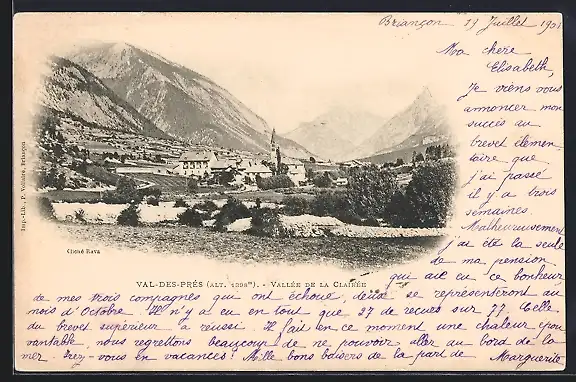 Briançon 19 Juillet 1901
Ma chère
Elisabeth,
Je viens vous
annoncer mon
succès au
brevet élémen
taire que
j'ai passé
il y a trois
semaines.
Malheureusement
j'ai été la seule
de ma pension
qui ait eu ce bonheur
Imp.-Lib. P. Vollaire, Briançon
Cliché Rava
VAL-DES-PRÉS (ALT. 1098m). - VALLÉE DE LA CLAIRÉE
de mes trois compagnes qui ont échoué, deux se représenteront au
mois d'Octobre. Il n'y a eu en tout que 27 de recues sur 77. Celle
du brevet supérieur a réussi. Il fait en ce moment une chaleur épou
vantable, nous regrettons beaucoup de ne pouvoir aller au bord de la
mer. Êtez-vous en vacances? Mille bons baisers de la part de Marguerite